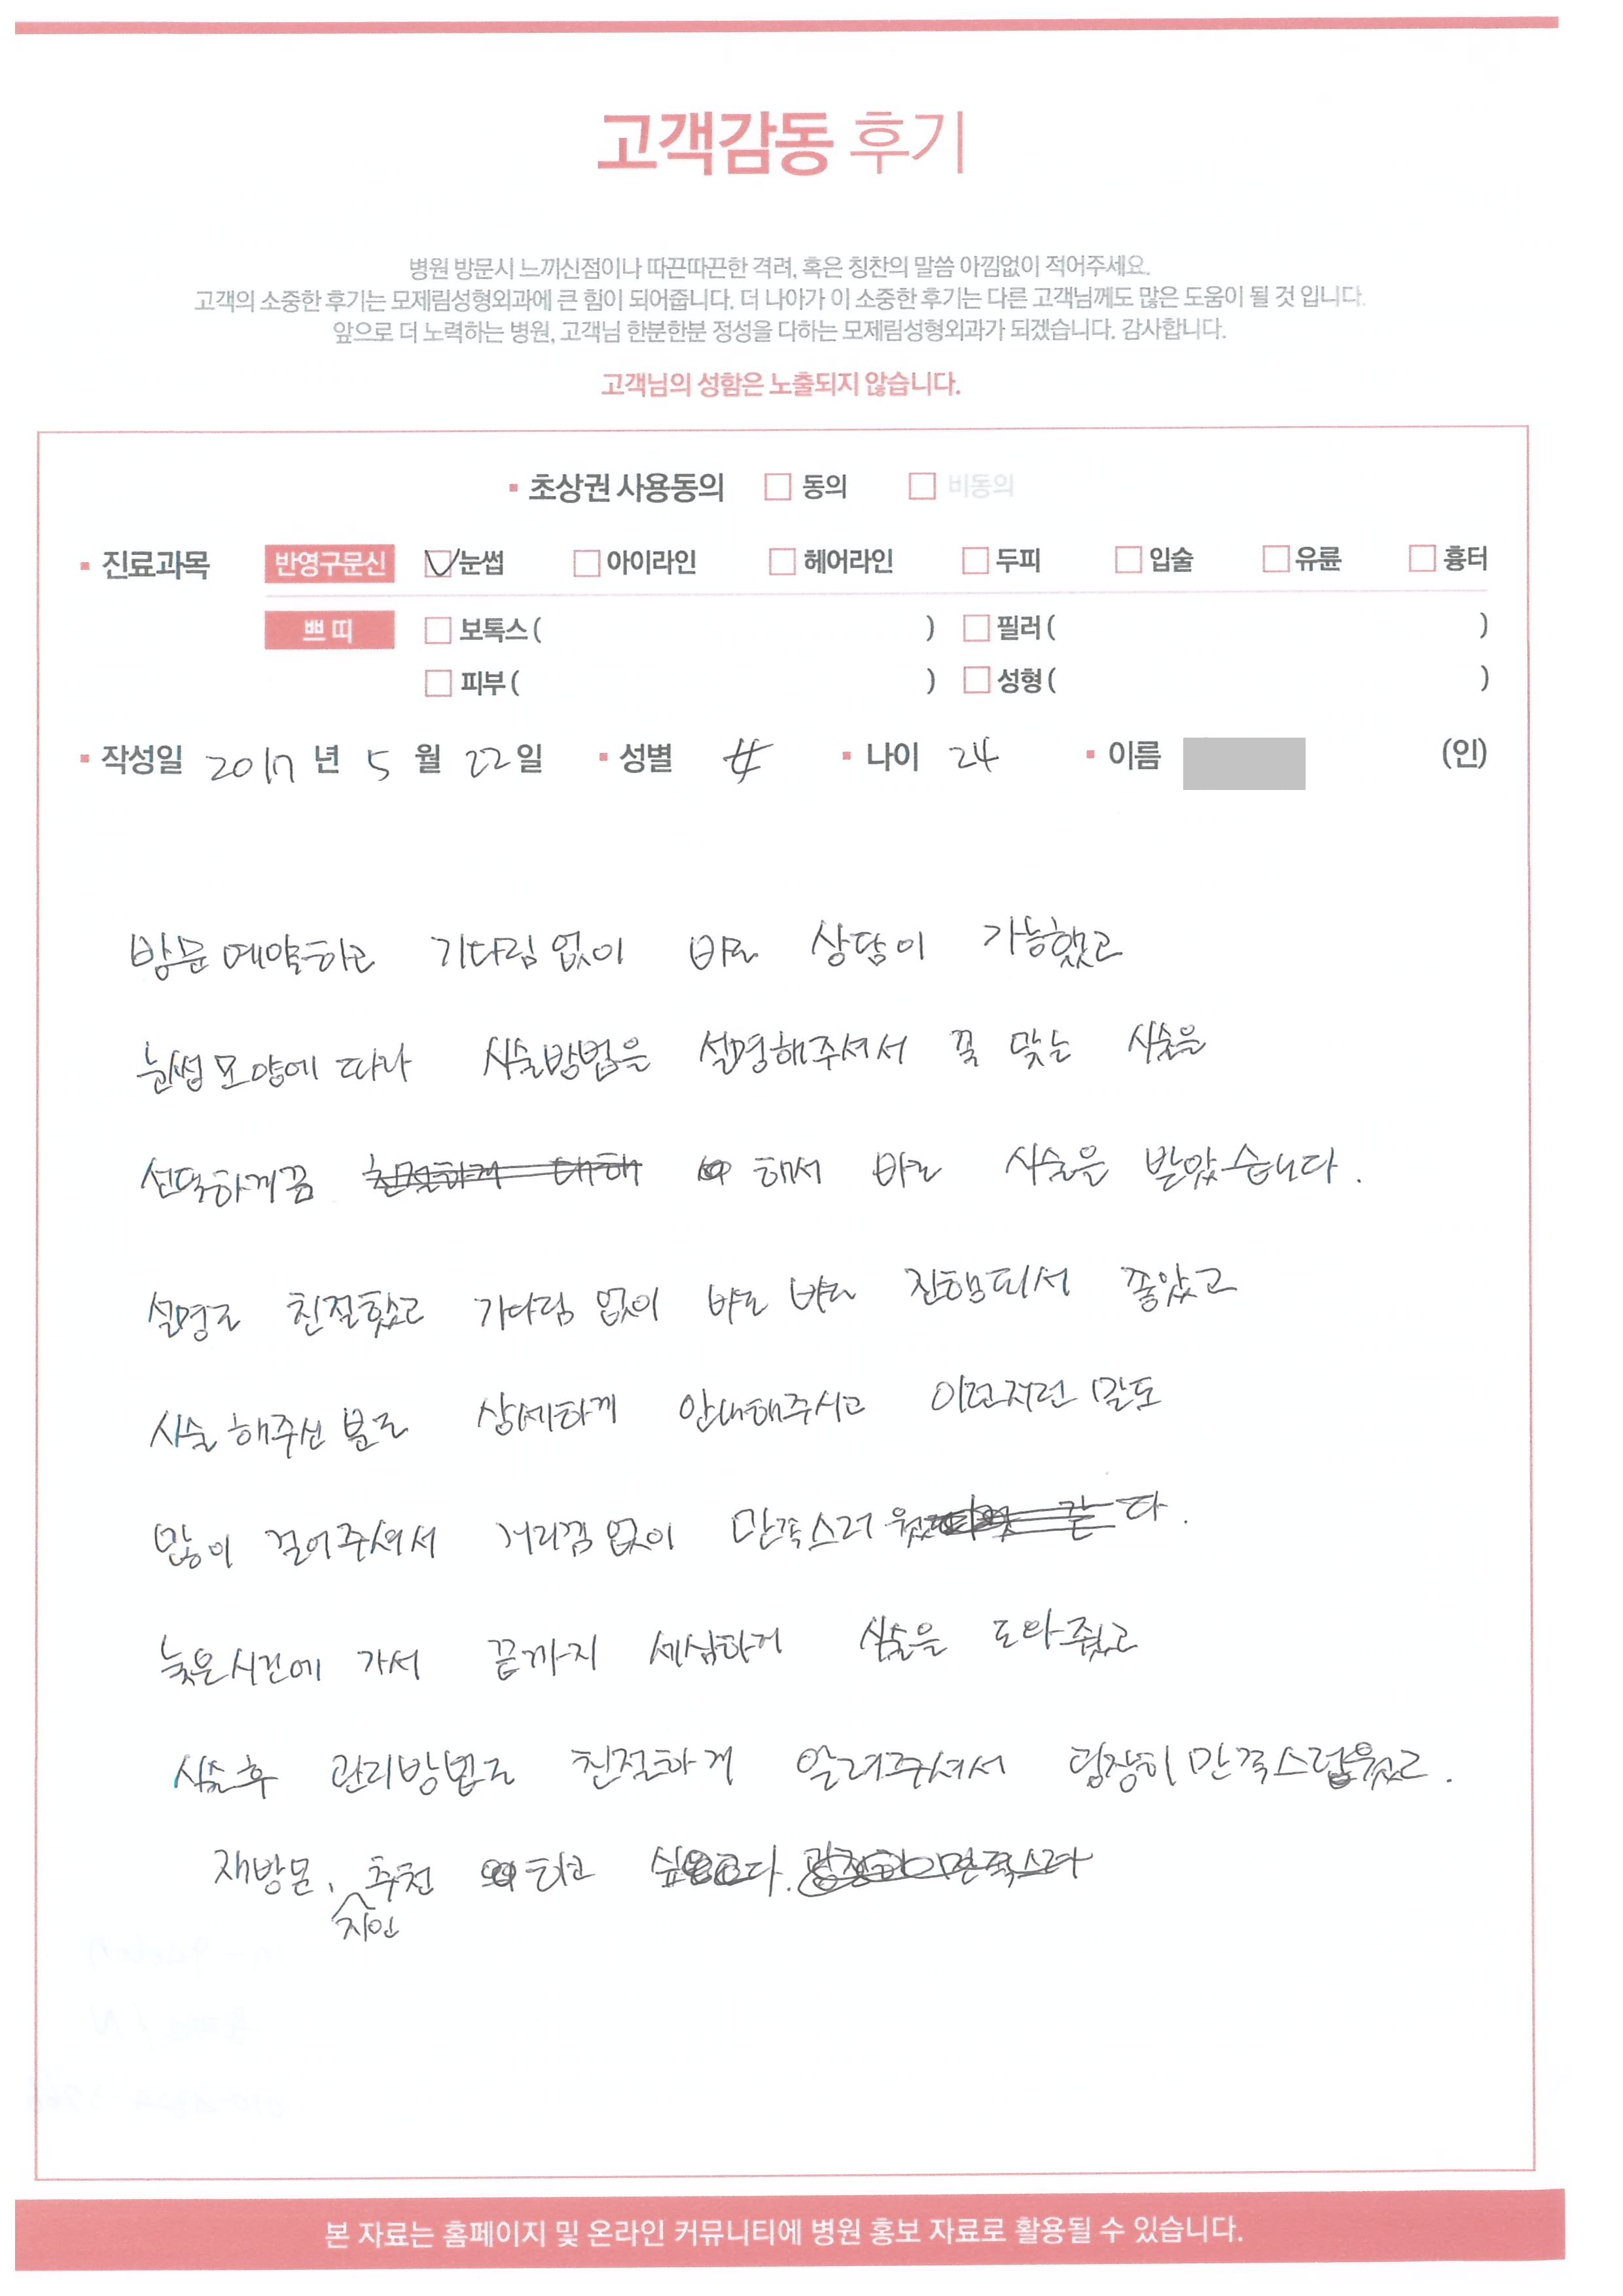 고객감동 후기
병원 방문시 느끼신점이나 따끈따끈한 격려, 혹은 칭찬의 말씀 아낌없이 적어주세요.
고객의 소중한 후기는 모제림성형외과에 큰 힘이 되어줍니다. 더 나아가 이 소중한 후기는 다른 고객님께도 많은 도움이 될 것 입니다.
앞으로 더 노력하는 병원, 고객님 한분한분 정성을 다하는 모제림성형외과가 되겠습니다. 감사합니다.
고객님의 성함은 노출되지 않습니다.
초상권 사용동의 동의 비동의
진료과목 반영구문신 눈썹 아이라인 헤어라인 두피 입술 유륜 흉터
쁘띠 보톡스 ( ) 필러 ( )
피부 ( ) 성형 ( )
작성일 2017 년 5 월 22 일 성별 나이 24 이름 (인)
방문 예약하고 기다림 없이 바로 상담이 가능했고
눈썹모양에 따라 시술방법을 설명해주셔서 꼭 맞는 시술을
선택하게끔 해서 바로 시술을 받았습니다.
설명도 친절했고 기다림 없이 바로 바로 진행되서 좋았고
시술 해주신 분도 상세하게 안내해주시고 이런저런 말도
많이 걸어주셔서 거리낌 없이 만족스러웠다.
늦은시간에 가서 끝까지 세심하게 시술을 도와줬고
시술후 관리방법도 친절하게 알려주셔서 굉장히 만족스럽웠고.
재방문, 지인 추천 하고 싶다.
본 자료는 홈페이지 및 온라인 커뮤니티에 병원 홍보 자료로 활용될 수 있습니다.